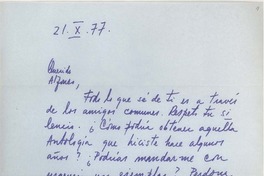 21. X. 77.
Querido
Alfonso,
Todo lo que sé de ti es a través
de los amigos comunes. Respeto tu si
lencio. ¿Cómo podría obtener aquella
Antología que hiciste hace algunos
años? ¿Podrías mandarme con
ejemplar? Perdona